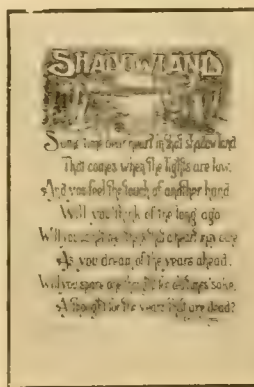 SHADOWLAND
Some time dear heart in that shadow land
That comes when the lights are low,
And you feel the touch of another hand
Will you think of the long ago
Will you
As you dream of the years ahead.
Will you spare one thought for
A thought for the years that are dead?